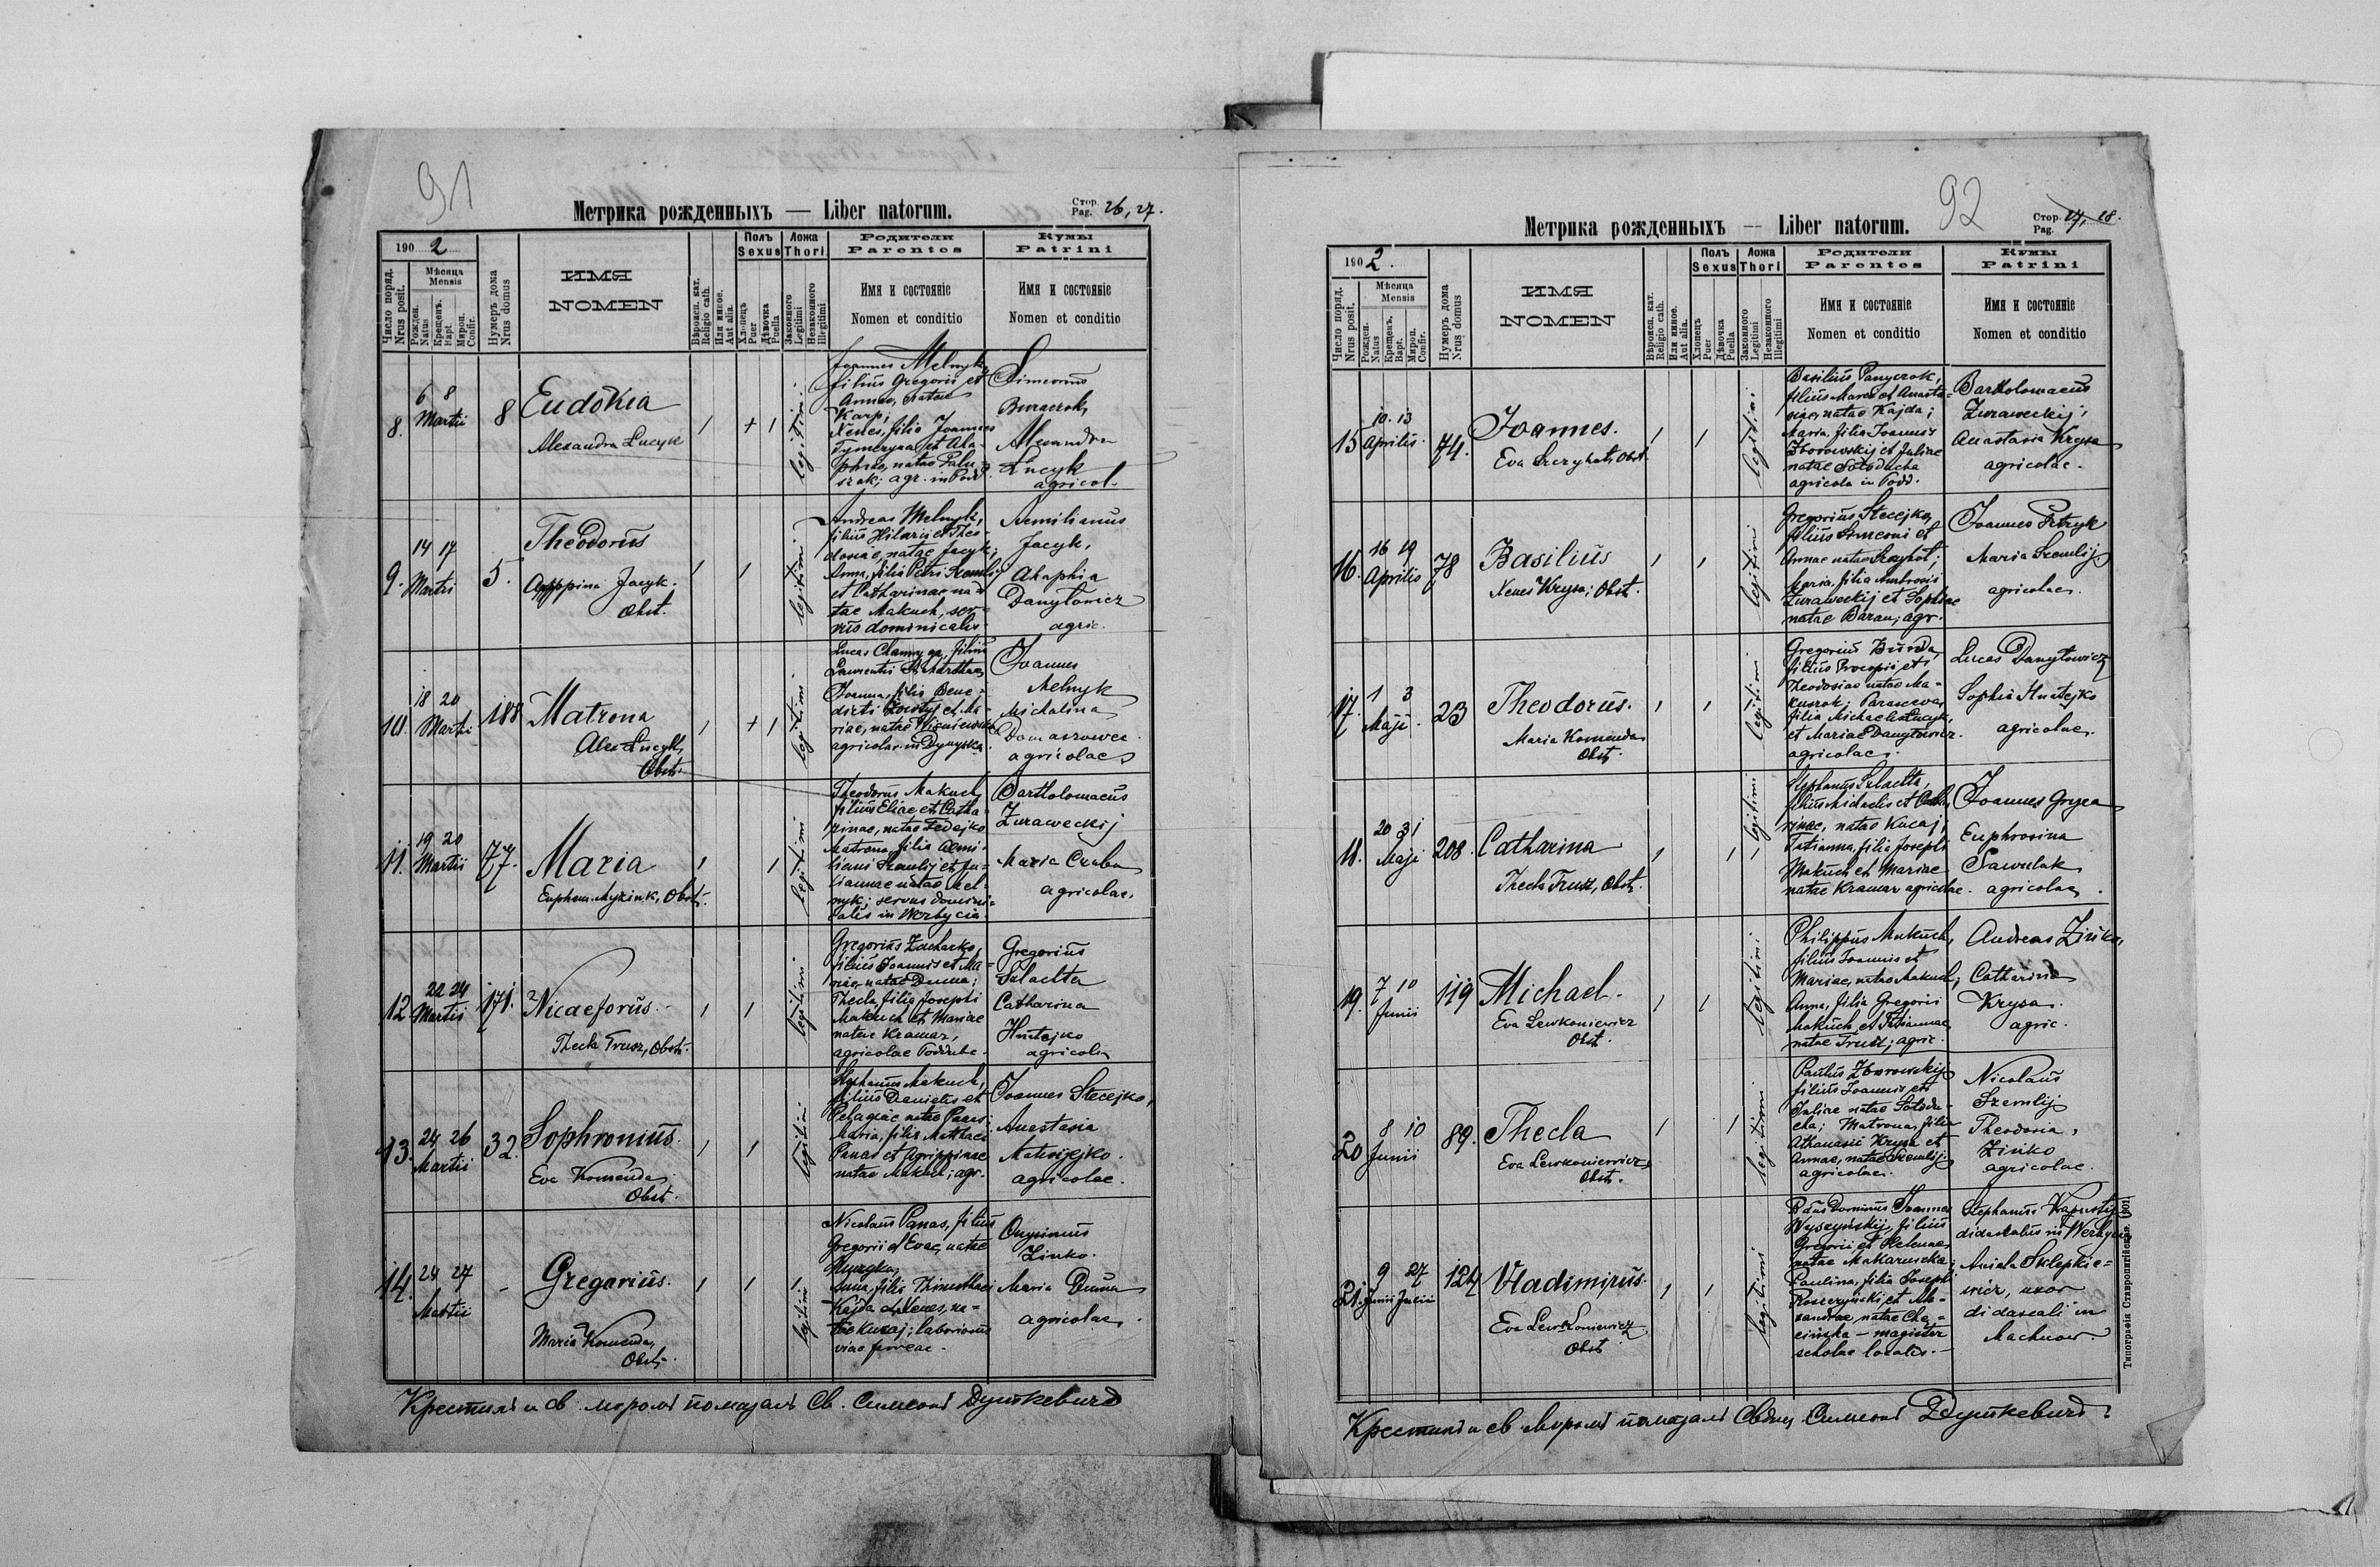 91
Метрика рожденныхъ — Liber natorum.
Стор. Pag. 26, 27.
1902
Число поряд. Nrus posit.
Мѣсяца Mensis
Рожден. Natus
Крещенъ. Bapt.
Миров. Confir.
Нумеръ дома Nrus domus
ИМЯ
NOMEN
Вѣроисп. кат. Religio cath.
Или инное. Aut alia.
Полъ Sexus
Хлопецъ Puer
Дѣвочка Puella
Ложа Thori
Законного Legitimi
Незаконного Illegitimi
Родители
Parentes
Имя и состояніе
Nomen et conditio
Кумы
Patrini
Имя и состояніе
Nomen et conditio
8.
6 8
Martii
8
Eudokia
Alexandra Łucyk
legitimi
Joannes Melnyk,
filius Gregorii et
Annae, natae
Karp;
Xenes, filia Joannis
agr. in Podd.
Simeonus
Buraczok,
Alexandra
Łucyk
agricol.
9.
14 17
Martii
5.
Theodorus
Jacyk.
Obst.
legitimi
Andreas Melnyk,
filius Hilarii et Theo
dosiae, natae Jacyk;
Anna, filia Petri Szemlij
et Catharinae na
tae Makuch, ser-
vus dominicalis
Aemilianus
Jacyk,
Ahaphia
Danyłowicz
agric.
10.
18 20
Martii
188
Matrona
Alex Łucyk,
Obst.
legitimi
Lucas filius
Laurentii
Joanna, filia Bene-
dicti et Ma-
riae, natae
agricolae in Dynyska.
Joannes
Melnyk
Michalina
Domaszowec
agricolae
11.
19 20
Martii
77.
Maria
Obst.
legitimi
Theodorus Makuch,
filius Eliae et Catha-
rinae, natae Fedejko
Matrona, filia Aemi-
liani Szemlij et Ju-
liannae natae Mel-
nyk; servus domini-
calis in Werbycia
Bartholomaeus
Żuraweckij
Maria Czaba
agricolae.
12.
22 24
Martii
171.
Nicaeforus.
Thecla Trusz, Obst.
legitimi
Gregorius Zacharko,
filius Joannis et Ma-
riae, natae Duma;
Thecla, filia Josephi
Makuch et Mariae
natae Kramar,
agricolae Poddube.
Gregorius
Szlachta
Catharina
Hnatejko
agricolae
13.
24 26
Martii
32.
Sophronius.
Eva Komenda
Obst.
legitimi
Stephanus Makuch,
filius Danielis et
Pelagiae natae Panas;
Maria, filia Matthaei
Panas et Agrippinae
natae Makuch; agr.
Joannes Stecejko,
Anastasia
Matwijejko.
agricolae.
14.
24 27
Martii
-
Gregorius.
Maria Komenda,
Obst.
legitimi
Nicolaus Panas, filius
Gregorii et Evae, natae
Anna, filia Timothaei
Kajda et Xenes, na-
tae Kucaj; laboriosus
viae ferreae.
Onysimus
Zinko.
Maria Duma
agricolae.
Крестилъ и св. мѵромъ помазалъ Св. Симеонъ Душкевичъ
92
Метрика рожденныхъ — Liber natorum.
Стор. Pag. 27, 28.
1902.
Число поряд. Nrus posit.
Мѣсяца Mensis
Рожден. Natus
Крещенъ. Bapt.
Миров. Confir.
Нумеръ дома Nrus domus
ИМЯ
NOMEN
Вѣроисп. кат. Religio cath.
Или инное. Aut alia.
Полъ Sexus
Хлопецъ Puer
Дѣвочка Puella
Ложа Thori
Законного Legitimi
Незаконного Illegitimi
Родители
Parentes
Имя и состояніе
Nomen et conditio
Кумы
Patrini
Имя и состояніе
Nomen et conditio
15
10. 13
Aprilis.
74.
Joannes.
Eva Szczyhot, Obst.
legitimi
Basilius Panyczok,
filius Marci et Anasta-
siae, natae Kajda;
Maria, filia Joannis
Zborowskij et Juliae
natae Sołoducha
agricola in Podd.
Bartholomaeus
Żuraweckij;
Anastasia Krysa
agricolae.
16.
16 19
Aprilis
78
Basilius
Xenes Krysa; Obst.
legitimi
Gregorius Stecejko,
filius Simeoni et
Annae natae Szczyhot;
Maria, filia Ambrosii
Żuraweckij et Sophiae
natae Baran; agr.
Joannes Petryk
Maria Szemlij
agricolae.
17.
1 3
Maji.
23
Theodorus.
Maria Komenda
Obst.
legitimi
Gregorius Bunda,
filius Procopii et
Theodosiae natae Ma-
kuszok; Parascewa,
filia Michaelis Łucyk,
et Mariae Danyłowicz.
agricolae.
Lucas Danyłowicz
Sophia Hnatejko
agricolae.
18.
20 31
Maji
208.
Catharina
Thecla Trusz, Obst.
legitimi
Stephanus Szlachta,
filius Michaelis et Catha
rinae, natae Kucaj;
Tatianna, filia Josephi
Makuch et Mariae
natae Kramar agricolae.
Joannes Gryca
Euphrosina
Sawulak
agricolae.
19.
7 10
Junii
119
Michael.
Eva Lewkoniewicz
Obst.
legitimi
Philippus Makuch,
filius Joannis et
Mariae, natae Makuch;
Anna, filia Gregorii
Makuch et Tatiannae
natae Trusz; agric.
Andreas Zinko,
Catharina
Krysa.
agric.
20
8 10
Junii
89.
Thecla
Eva Lewkoniewicz
Obst.
legitimi
Paulus Zborowskij
filius Joannis et
Juliae natae Sołodu-
cha; Matrona, filia
Athanasii Krysa et
Annae, natae Szemlij.
agricolae.
Nicolaus
Szemlij
Theodosia,
Zinko
agricolae.
21.
9 27
Junii Julii
124
Vladimirus.
Eva Lewkoniewicz
Obst
legitimi
Dominus Joannes
Wyszyńskij, filius
Gregorii et Helenae
natae Makarucka;
Paulina, filia Josephi
et Ale-
xandrae, natae
cińska — magister
scholae localis.
Stephanus Kapustij
didascalus in Werbycia
Aniela Sklepkie-
wicz, uxor
didascali in
Machnow.
Крестилъ и св. мѵромъ помазалъ Симеонъ Душкевичъ
Типографія Ставропигійская. 1901.